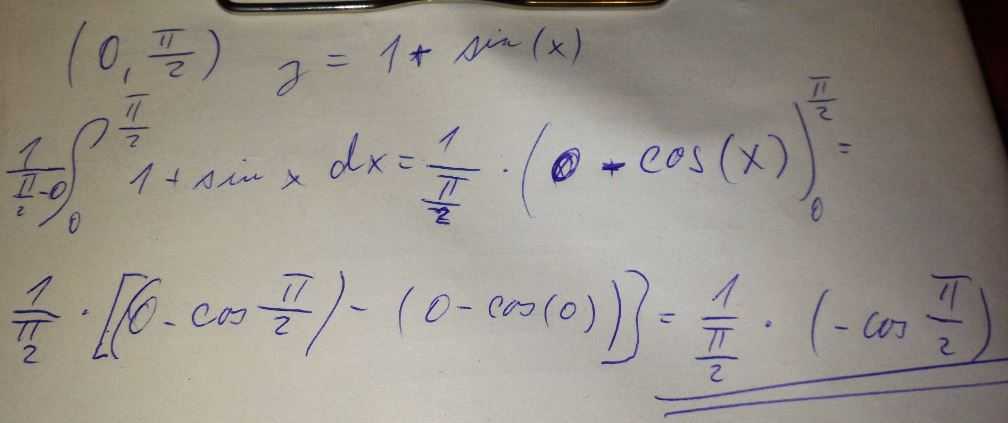 (0, π/2) y = 1 + sin(x)
1/(π/2 - 0) ∫₀^(π/2) 1 + sin x dx = 1/(π/2) · (0 - cos(x))₀^(π/2) =
1/(π/2) · [(0 - cos π/2) - (0 - cos(0))] = 1/(π/2) · (- cos π/2)